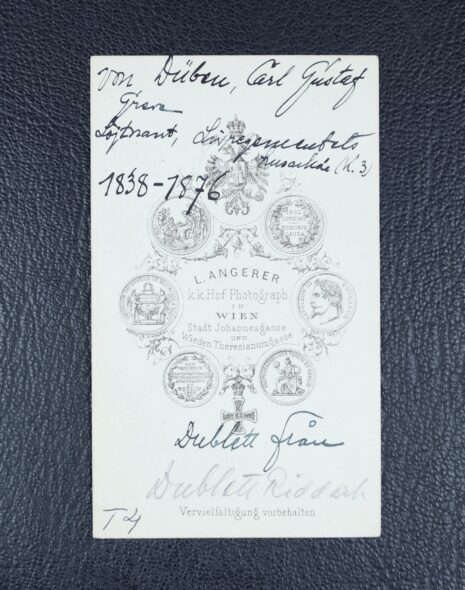 von Düben, Carl Gustaf
Greve
Löjtnant, Livregementets
husarkår (K. 3)
1838-1876
1862
LONDINI
HONORIS
CAUSA
L. ANGERER
k.k. Hof Photograph
IN
WIEN
Stadt Johannesgasse
UND
Wieden Theresianumgasse
BERLIN
Dublett från
Dublett Riddarh
T4
Vervielfältigung vorbehalten